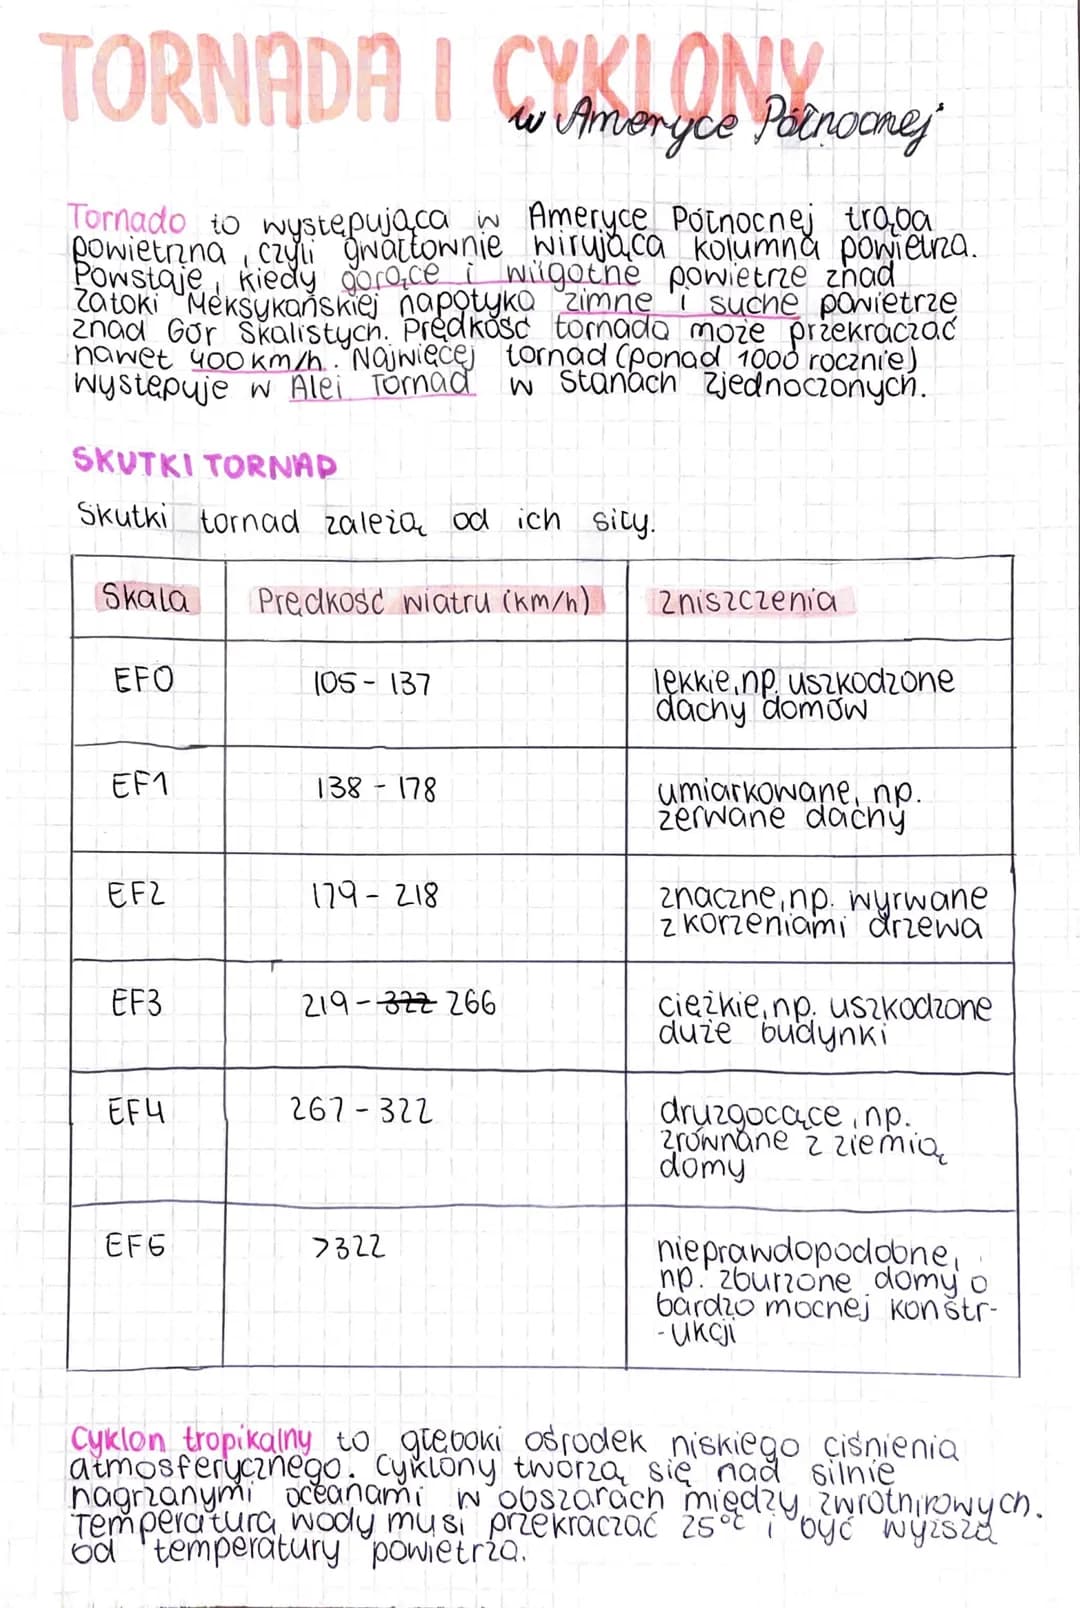 TORNADA I CYKLONY
w Ameryce Północnej
Tornado to występująca w Ameryce Północnej trąba
powietrzna, czyli gwałtownie wirująca kolumna powietrza.
Powstaje, kiedy gorące i wilgotne powietrze znad
Zatoki Meksykańskiej napotyka zimne i suche powietrze
znad Gór Skalistych. Prędkość tornada może przekraczać
nawet 400 km/h. Najwięcej tornad (ponad 1000 rocznie)
występuje w Alei Tornad w Stanach Zjednoczonych.
SKUTKI TORNAD
Skutki tornad zależą od ich siły.
Skala Prędkość wiatru (km/h) zniszczenia
EF0 105 - 137 lekkie, np. uszkodzone
dachy domów
EF1 138 - 178 umiarkowane, np.
zerwane dachy
EF2 179 - 218 znaczne, np. wyrwane
z korzeniami drzewa
EF3 219 - 322 266 ciężkie, np. uszkodzone
duże budynki
EF4 267 - 322 druzgocące, np.
zrównane z ziemią
domy
EF5 >322 nieprawdopodobne,
np. zburzone domy o
bardzo mocnej konstr-
-ukcji
Cyklon tropikalny to głęboki ośrodek niskiego ciśnienia
atmosferycznego. Cyklony tworzą się nad silnie
nagrzanymi oceanami w obszarach między zwrotnikowych.
Temperatura wody musi przekraczać 25°C i być wyższa
od temperatury powietrza.